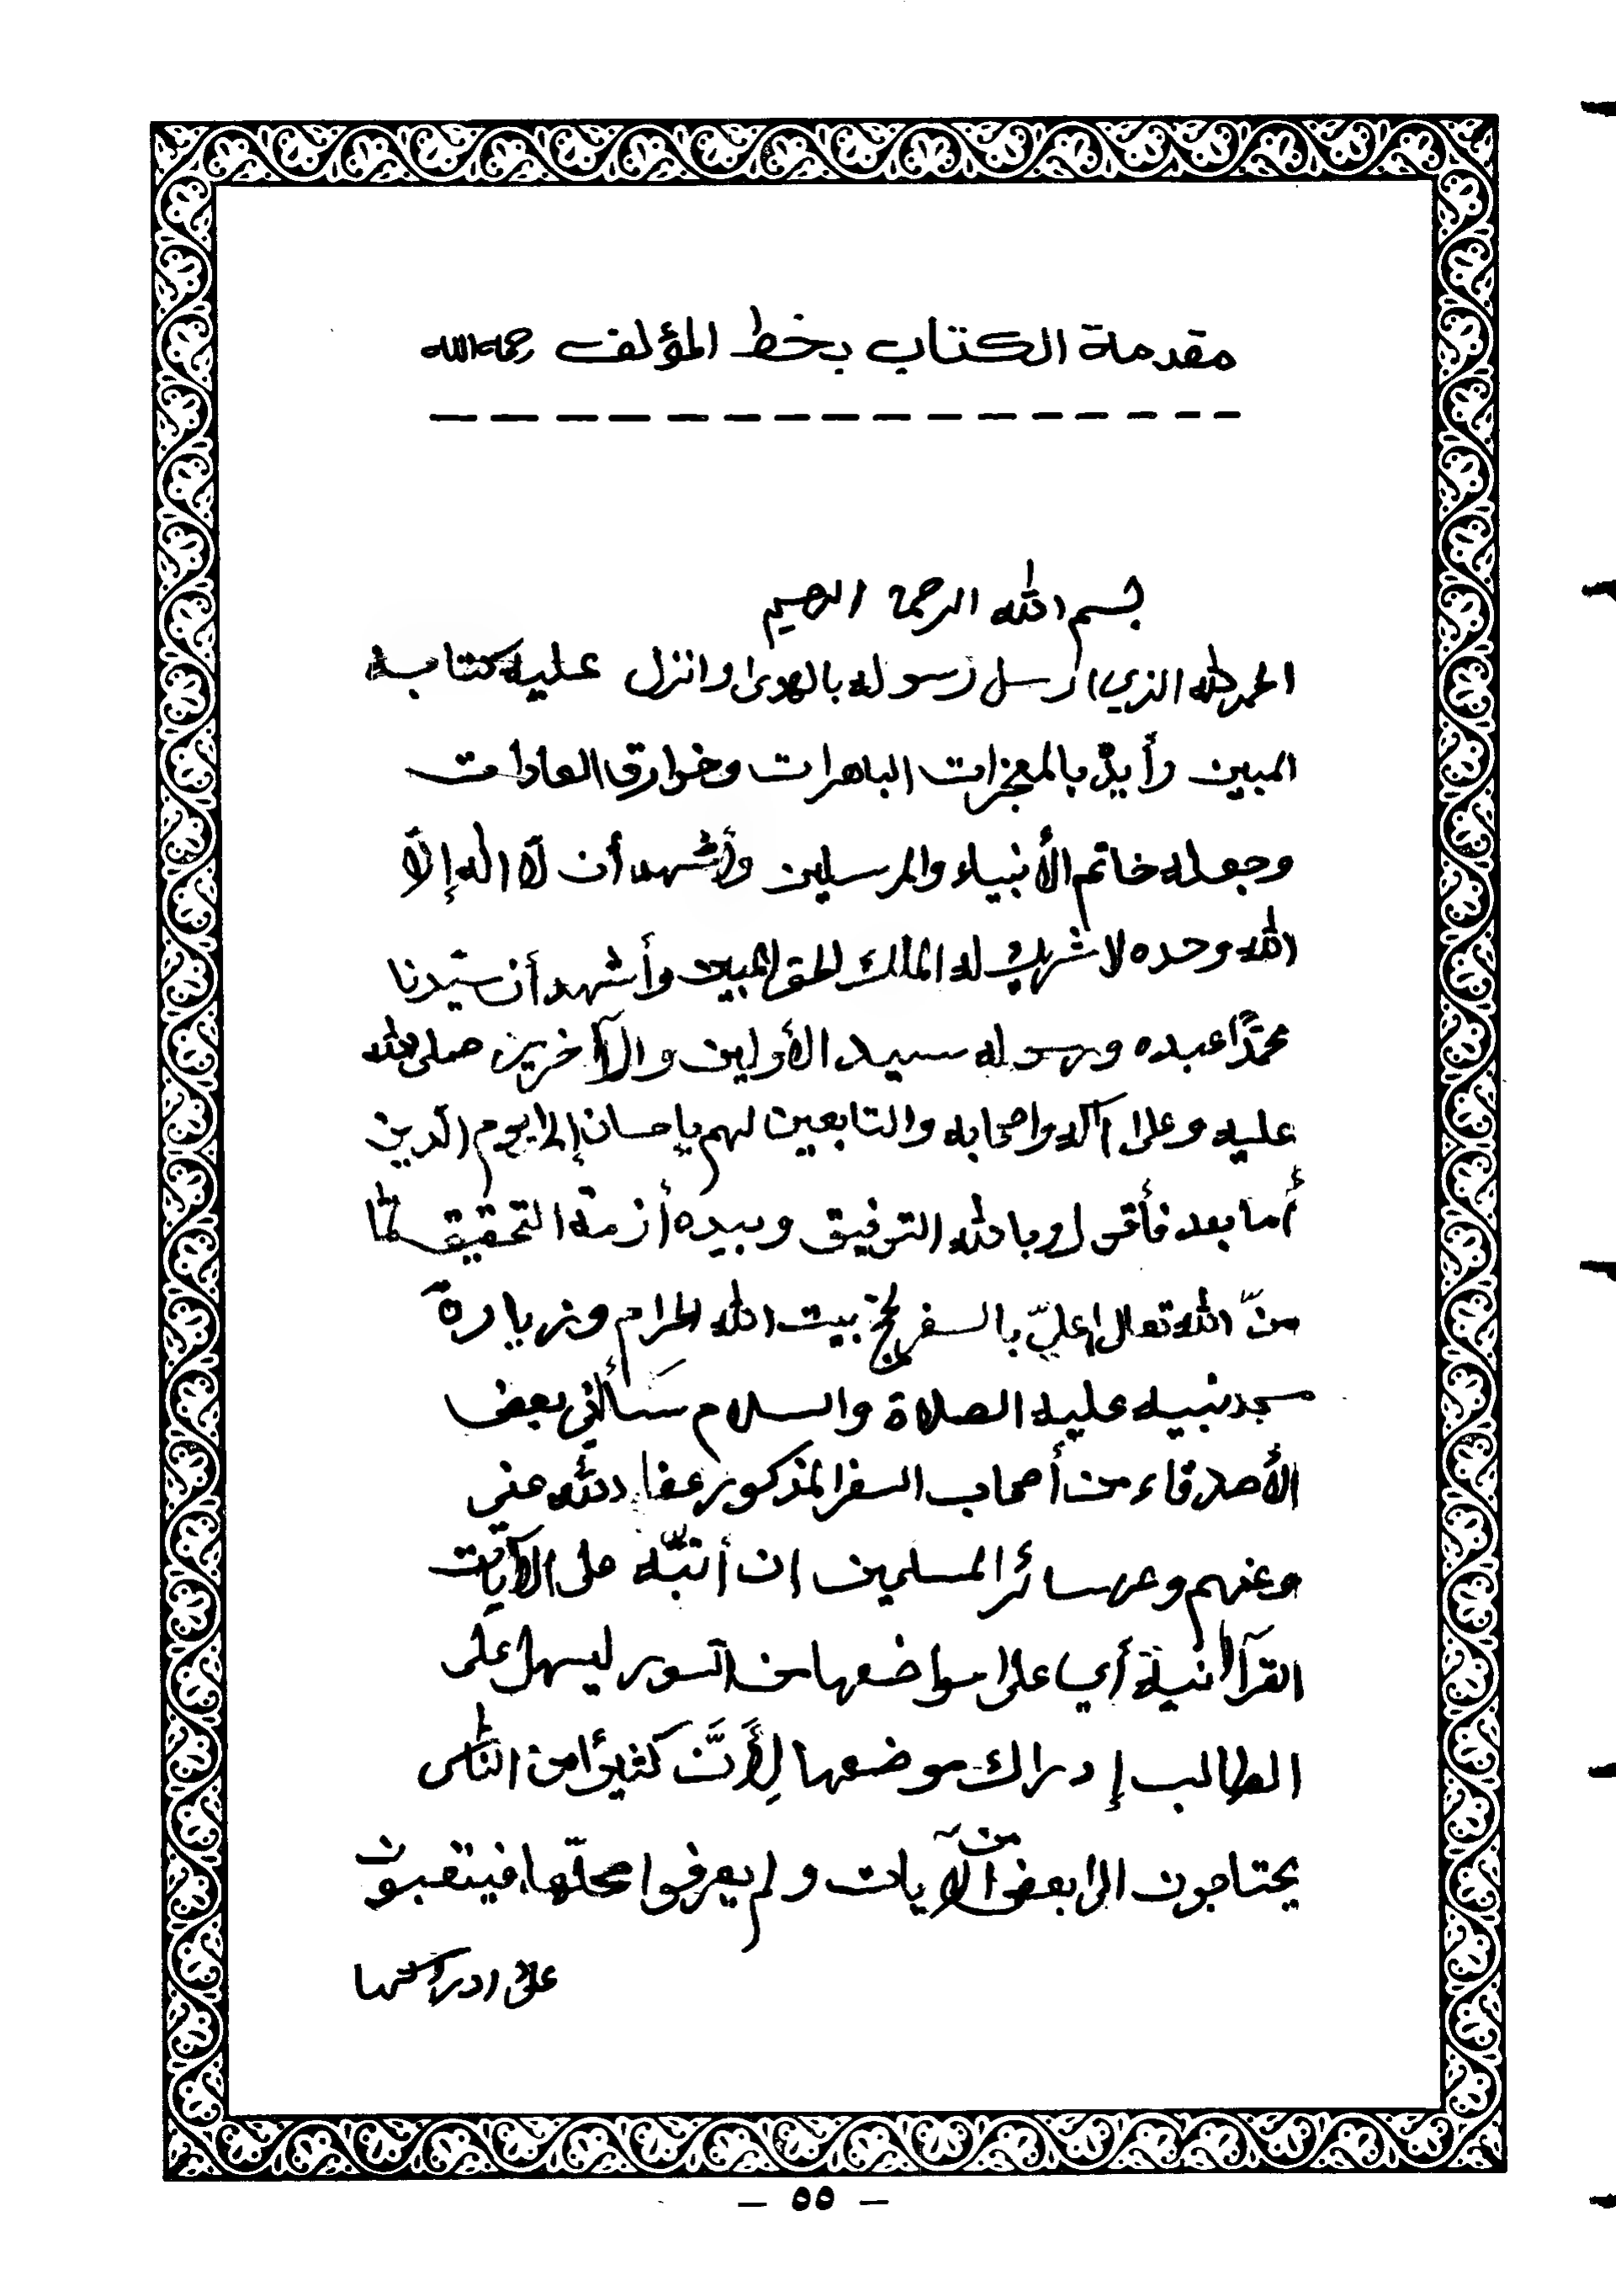 مقدمة الكتاب بخط المؤلف رحمه الله
بسم الله الرحمن الرحيم
الحمد لله الذي ارسل رسوله بالهدى وانزل عليه كتابه
المبين وأيده بالمعجزات الباهرات وخوارق العادات
وجعله خاتم الأنبياء والمرسلين وأشهد أن لّا اله إلّا
الله وحده لا شريك له الملك الحق المبين وأشهد أن سيّدنا
محمّدًا عبده ورسوله سيد الأولين والآخرين صلى الله
عليه وعلى آله واصحابه والتابعين لهم بإحسان إلى يوم الدين
أما بعد فأقول وبالله التوفيق وبيده أزمة التحقيق لمّا
منّ الله تعالى عليّ بالسفر لحج بيت الله الحرام وزيارة
مسجد نبيه عليه الصلاة والسلام سَألني بعض
الأصدقاء من أصحاب السفر المذكور عفا الله عني
وعنهم وعن سائر المسلمين ان أنبّه على الآيات
القرآنية أي على مواضعها من السور ليسهل عَلى
الطالب إدراك موضعها لِأَنَّ كثيرًا من النّاس
يحتاجون الى بعض من الآيات ولم يعرفوا محلّها فيتعبون
على ادراكها
— ٥٥ —